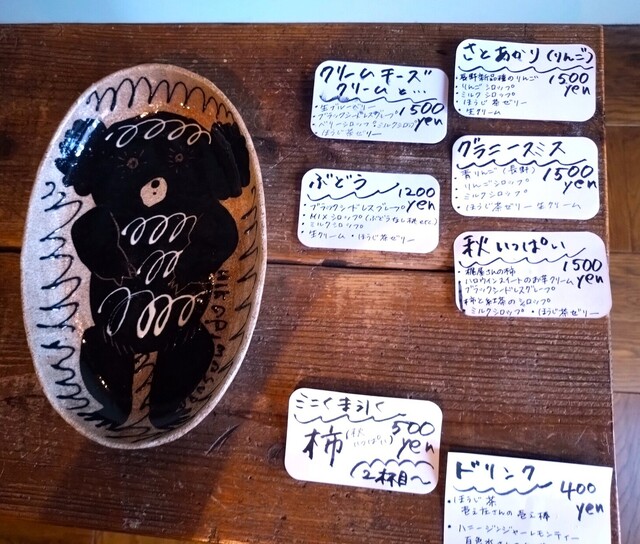 クリームチーズ
クリームと…
・生ブルーベリー
1500
yen
・ブラックシードレスグレープ
・ベリーシロップ&ミルクシロップ
ほうじ茶ゼリー
さとあかり(りんご)
・長野新品種のりんご
1500
yen
・りんごシロップ
・ミルクシロップ
・ほうじ茶ゼリー
・生クリーム
ぶどう
1200
yen
・ブラックシードレスグレープ
・MIXシロップ(ぶどうなし桃etc)
・ミルクシロップ
・生クリーム・ほうじ茶ゼリー
グラニースミス
・青りんご(長野)
1500
yen
・りんごシロップ
・ミルクシロップ
・ほうじ茶ゼリー 生クリーム
秋いっぱい
1500
yen
・さんの柿
・ハロウィンスイートのお芋クリーム
ブラックシードレスグレープ
・柿と紅茶のシロップ
・ミルクシロップ・ほうじ茶ゼリー
ミニくま氷
柿
(秋
いっぱい)
500
yen
(2杯目〜)
ドリンク
400
yen
・ほうじ茶
・ハニージンジャーレモンティー